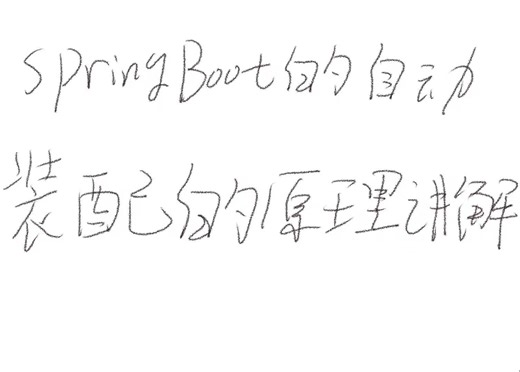 SpringBoot的自动
装配的原理讲解